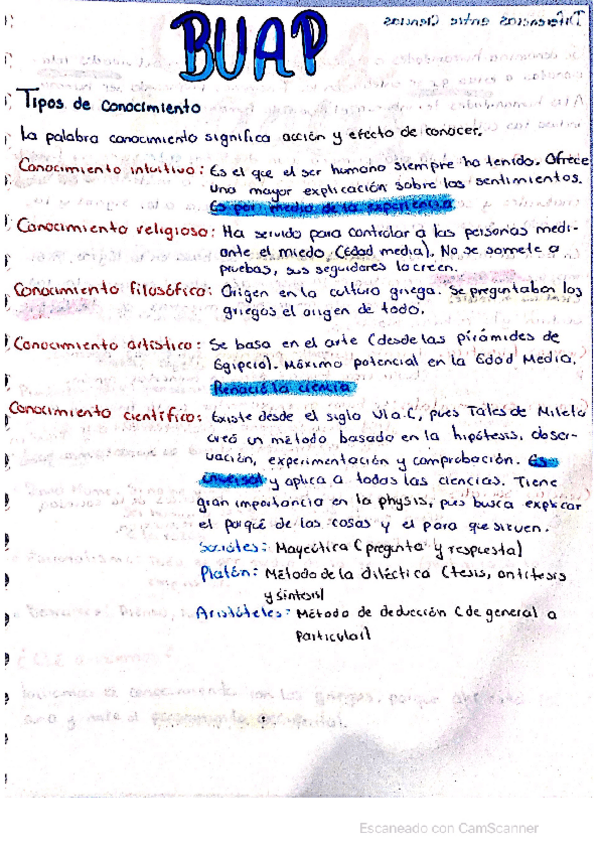 BUAP
Tipos de conocimiento
La palabra conocimiento significa acción y efecto de conocer.
Conocimiento intuitivo: Es el que el ser humano siempre ha tenido. Ofrece
una mayor explicación sobre los sentimientos.
Es por medio de la experiencia
Conocimiento religioso: Ha servido para controlar a las personas medi-
ante el miedo (Edad media). No se somete a
pruebas, sus seguidores lo creen.
Conocimiento filosófico: Origen en la cultura griega. Se preguntaban los
griegos el origen de todo.
Conocimiento artístico: Se basa en el arte (desde las pirámides de
Egipcio). Máximo potencial en la Edad Media.
Renació la ciencia
Conocimiento científico: Existe desde el siglo VI a.C, pues Tales de Mileto
creó un método basado en la hipótesis, obser-
vación, experimentación y comprobación. Es
universal y aplica a todas las ciencias. Tiene
gran importancia en la physis, pues busca explicar
el porqué de las cosas y el para que sirven.
Sócrates: Mayeútica (pregunta y respuesta)
Platón: Método de la diléctica (tesis, antítesis
y síntesis)
Aristóteles: Método de deducción (de general a
particular)
Escaneado con CamScanner